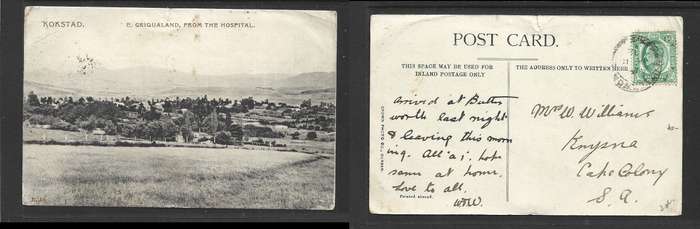 KOKSTAD.
E. GRIQUALAND, FROM THE HOSPITAL.
POST CARD.
THIS SPACE MAY BE USED FOR
INLAND POSTAGE ONLY
THE ADDRESS ONLY TO WRITTEN HERE
Arrived at Butter
worth last night
& leaving this morn
ing. All "a,", hope
same at home.
love to all.
WJW.
Printed abroad.
Mrs W. Williams
Knysna
Cape Colony
S. A.